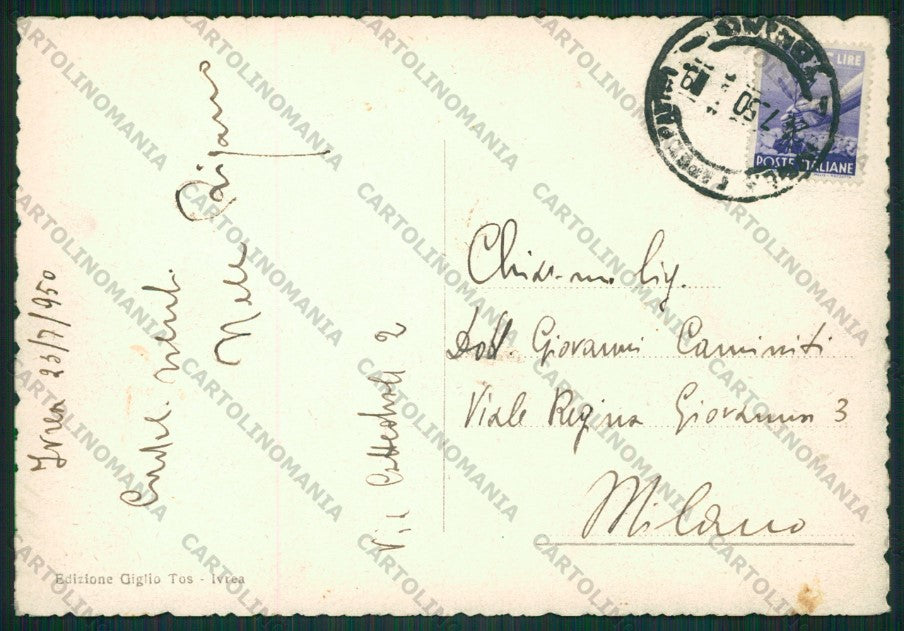 Ivrea 23/7/950
Via Cattedrale 2
Chiar.mo Sig.
Dott. Giovanni Caminiti
Viale Regina Giovanna 3
Milano
Edizione Giglio Tos - Ivrea
LIRE
POSTE ITALIANE
7 50
CARTOLINOMANIA